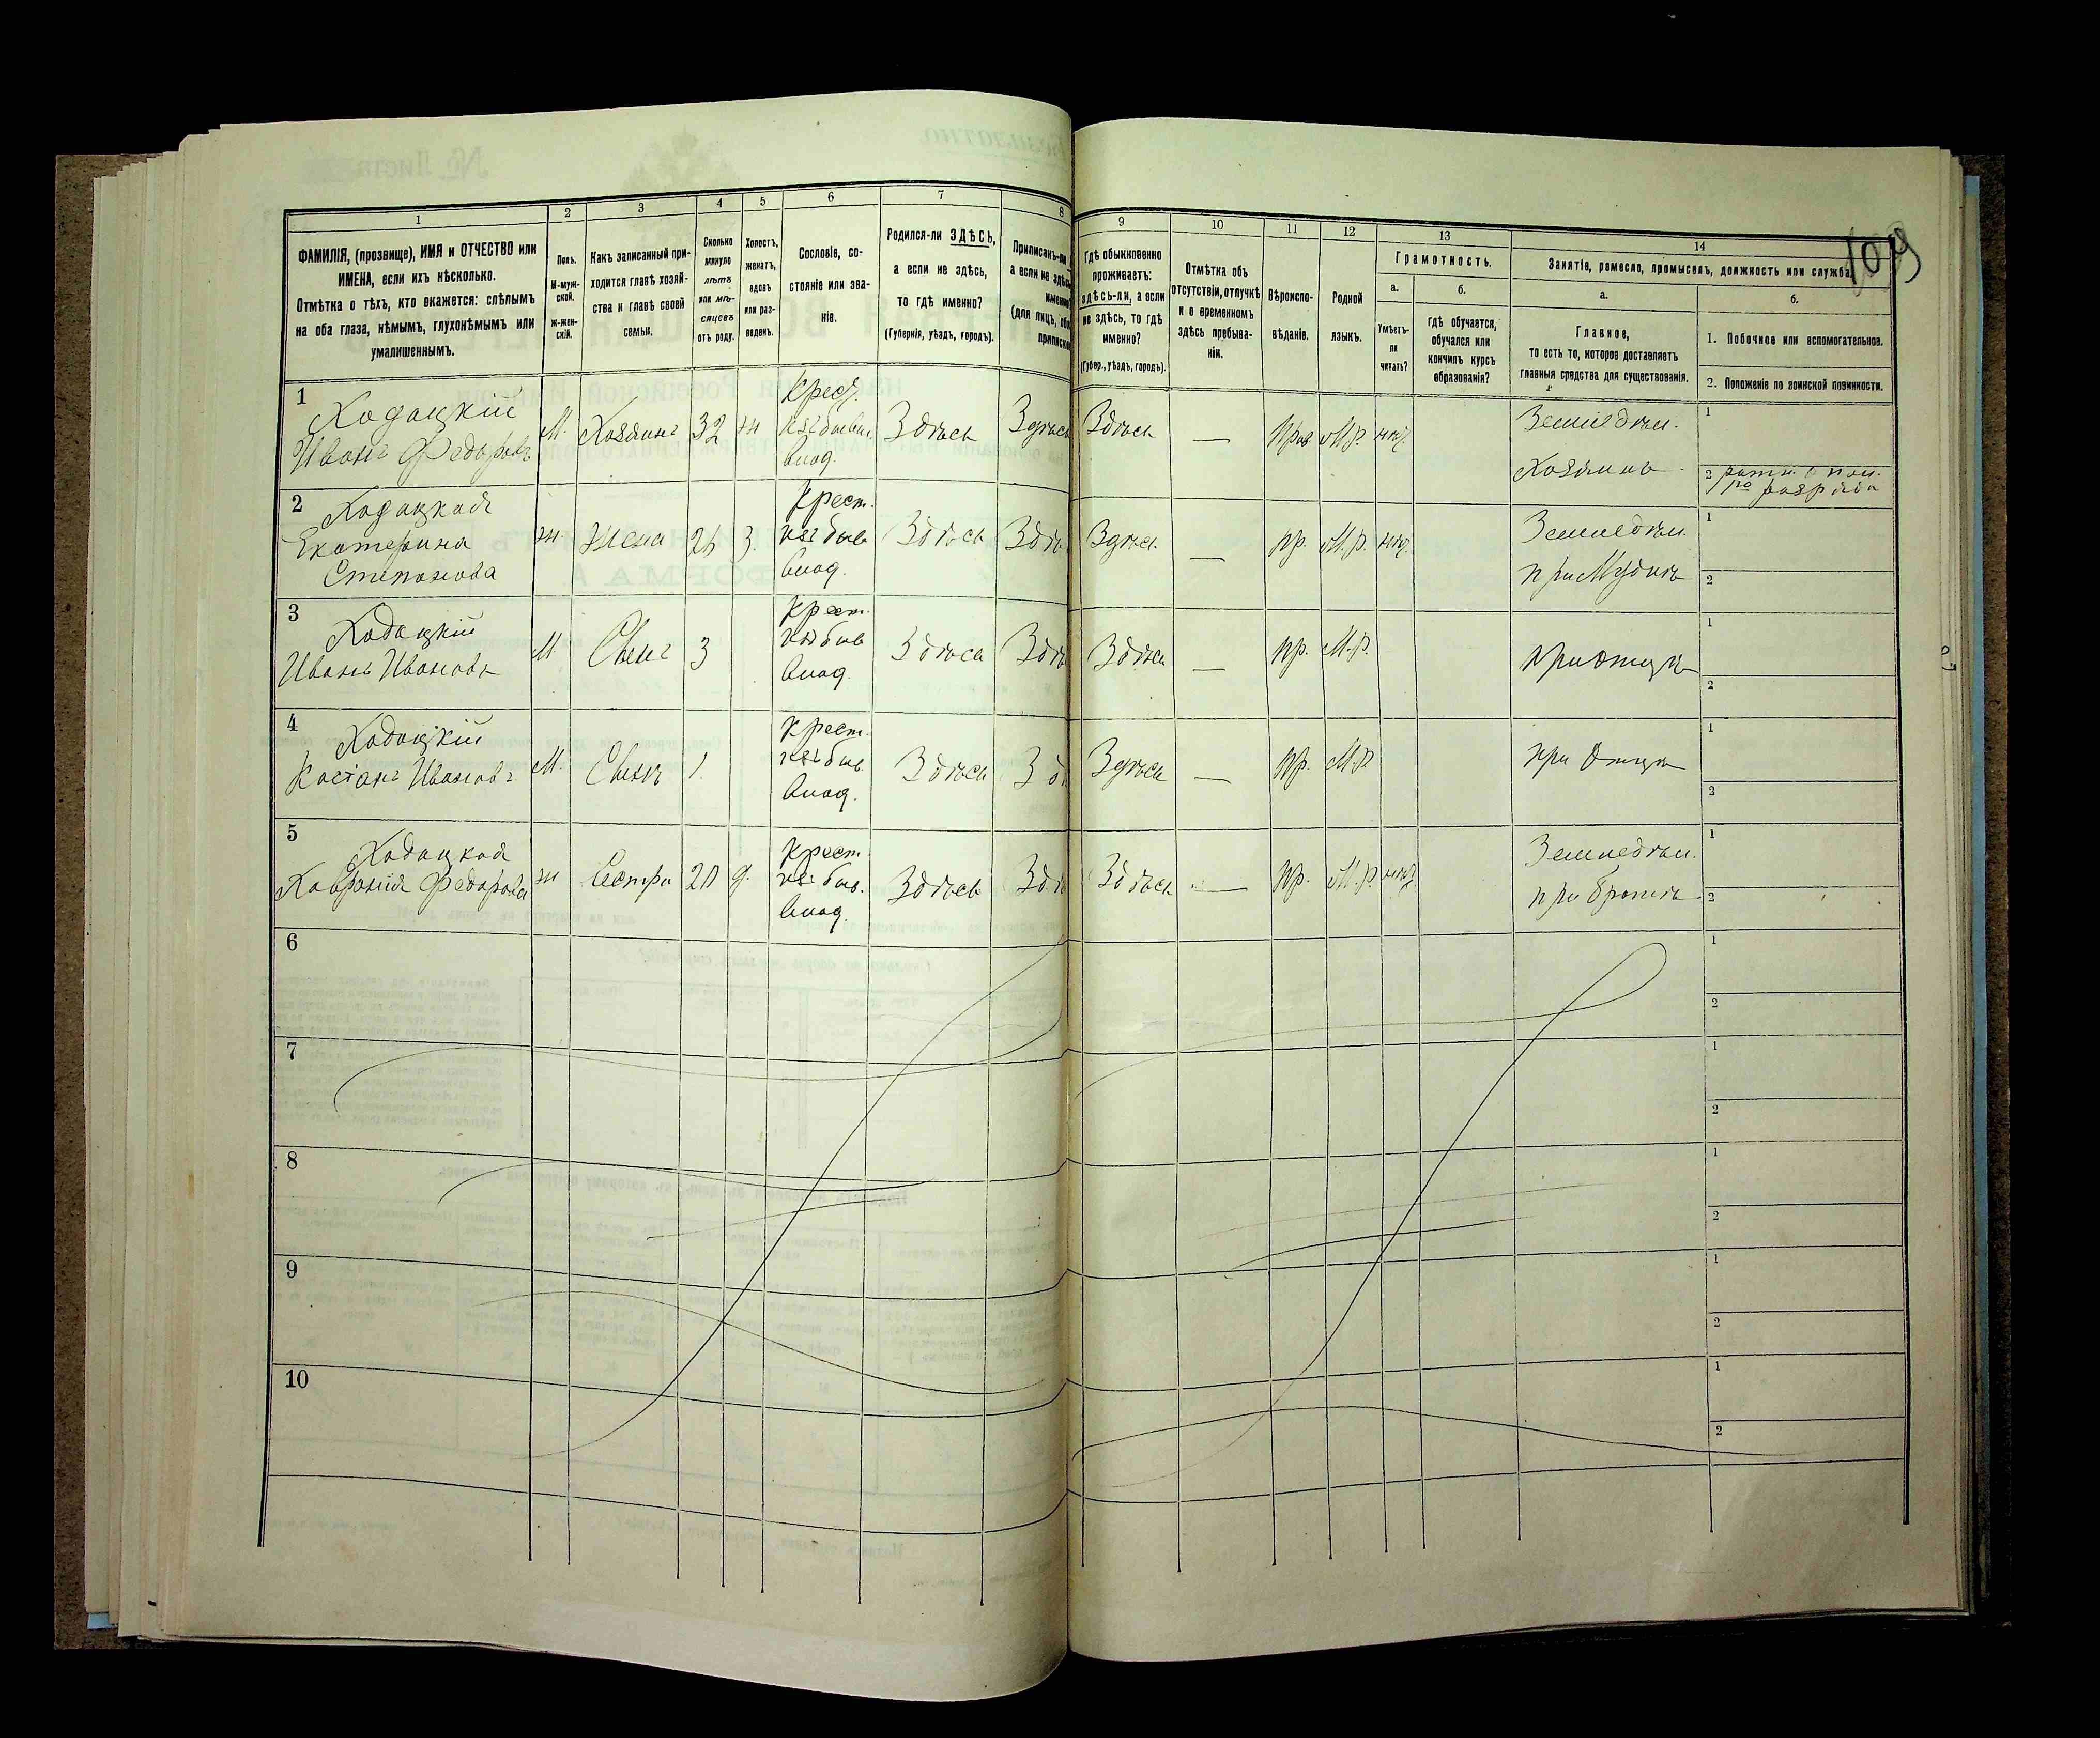 109
1
2
3
4
5
6
7
8
9
10
11
12
13
14
ФАМИЛІЯ, (прозвище), ИМЯ и ОТЧЕСТВО или
ИМЕНА, если ихъ нѣсколько.
Отмѣтка о тѣхъ, кто окажется: слѣпымъ
на оба глаза, нѣмымъ, глухонѣмымъ или
умалишеннымъ.
Полъ.
М-муж-
ской.
ж-жен-
скій.
Какъ записанный при-
ходится главѣ хозяй-
ства и главѣ своей
семьи.
Сколько
минуло
лѣтъ
или мѣ-
сяцевъ
отъ роду.
Холостъ,
женатъ,
вдовъ
или раз-
веденъ.
Сословіе, со-
стояніе или зва-
ніе.
Родился-ли ЗДѢСЬ,
а если не здѣсь,
то гдѣ именно?
(Губернія, уѣздъ, городъ).
Приписанъ-ли
а если не здѣсь
именно?
(для лицъ,
Гдѣ обыкновенно
проживаетъ:
здѣсь-ли, а если
не здѣсь, то гдѣ
именно?
(Губер., уѣздъ, городъ).
Отмѣтка объ
отсутствіи, отлучкѣ
и о временномъ
здѣсь пребыва-
ніи.
Вѣроиспо-
вѣданіе.
Родной
языкъ.
Грамотность.
а.
Умѣетъ-
ли
читать?
б.
гдѣ обучается,
обучался или
кончилъ курсъ
образованія?
Занятіе, ремесло, промыселъ, должность или служба.
а.
Главное,
то есть то, которое доставляетъ
главныя средства для существованія.
б.
1. Побочное или вспомогательное.
2. Положеніе по воинской повинности.
1
Ходацкій
Иванъ Федоровъ
М.
Хозяинъ
32
ж
Крест.
влад.
Здѣсь
Здѣсь
Здѣсь
—
Прав
М.Р.
нѣт.
Землѣдѣл.
Хозяинъ
1
2
разряда
2
Ходацкая
Екатерина
Степанова
ж.
Жена
26
З.
Крест.
изъ бывш
влад.
Здѣсь
Здѣ
Здѣсь
—
пр.
М.Р.
нѣт.
Землѣдѣл.
при Мужѣ
1
2
3
Ходацкій
Иванъ Ивановъ
М
Сынъ
3
Крест.
изъ бывш
влад.
Здѣсь
Здѣ
Здѣсь
—
пр.
М.Р.
при отцѣ
1
2
4
Ходацкій
Касіанъ Ивановъ
М.
Сынъ
1.
Крест.
изъ быв.
влад.
Здѣсь
Зд
Здѣсь
—
пр.
М.Р
при Отцѣ
1
2
5
Ходацкая
Хавронія Федорова
ж
Сестра
20
д.
Крест.
изъ быв.
влад.
Здѣсь
Здѣ
Здѣсь
—
пр.
М.Р.
нѣт.
Землѣдѣл.
при братѣ
1
2
6
1
2
7
1
2
8
1
2
9
1
2
10
1
2